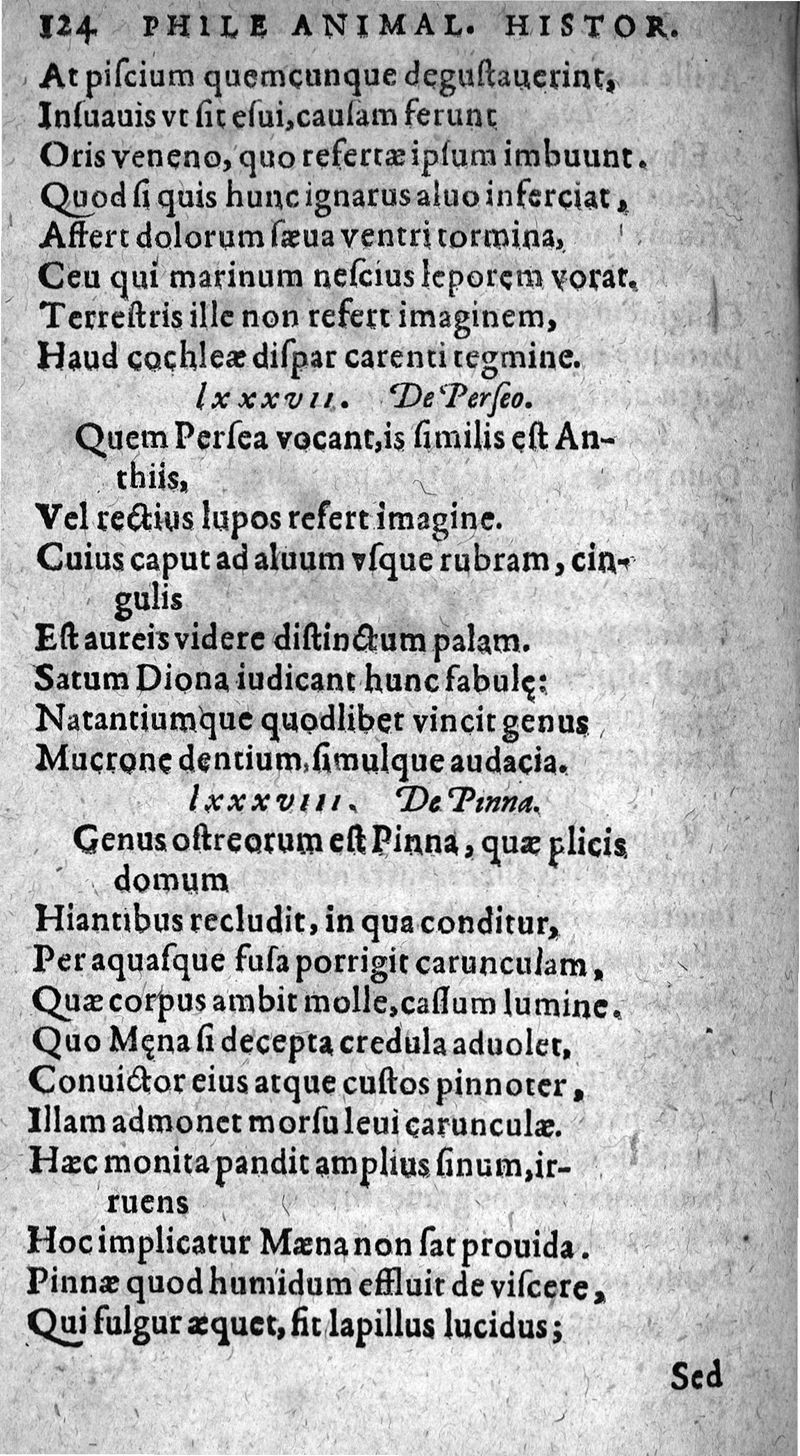 124 PHILE ANIMAL. HISTOR.
At piſcium quemcunque deguſtauerint,
Inſuauis vt ſit eſui,cauſam ferunt
Oris veneno, quo refertæ ipſum imbuunt.
Quod ſi quis hunc ignarus aluo inferciat,
Affert dolorum ſæua ventri tormina,
Ceu qui marinum neſcius leporem vorat.
Terreſtris ille non refert imaginem,
Haud cochleæ diſpar carenti tegmine.
lxxxvii. De Perſeo.
Quem Perſea vocant,is ſimilis eſt An-
thiis,
Vel rectius lupos refert imagine.
Cuius caput ad aluum vſque rubram, cin-
gulis
Eſt aureis videre diſtinctum palam.
Satum Diona iudicant hunc fabulę:
Natantiumque quodlibet vincit genus
Mucrone dentium,ſimulque audacia.
lxxxviii. De Pinna.
Genus oſtreorum eſt Pinna, quæ plicis
domum
Hiantibus recludit, in qua conditur,
Per aquaſque fuſa porrigit carunculam,
Quæ corpus ambit molle,caſſum lumine.
Quo Męna ſi decepta credula aduolet,
Conuictor eius atque cuſtos pinnoter,
Illam admonet morſu leui carunculæ.
Hæc monita pandit amplius ſinum,ir-
ruens
Hoc implicatur Mæna non ſat prouida.
Pinnæ quod humidum effluit de viſcere,
Qui fulgur æquet, fit lapillus lucidus;
Sed